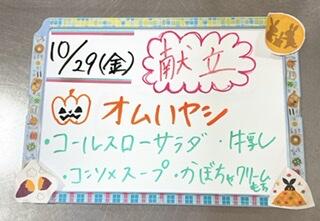 10/29(金) 献立
オムハヤシ
・コールスローサラダ ・牛乳
・コンソメスープ ・かぼちゃクリームもち